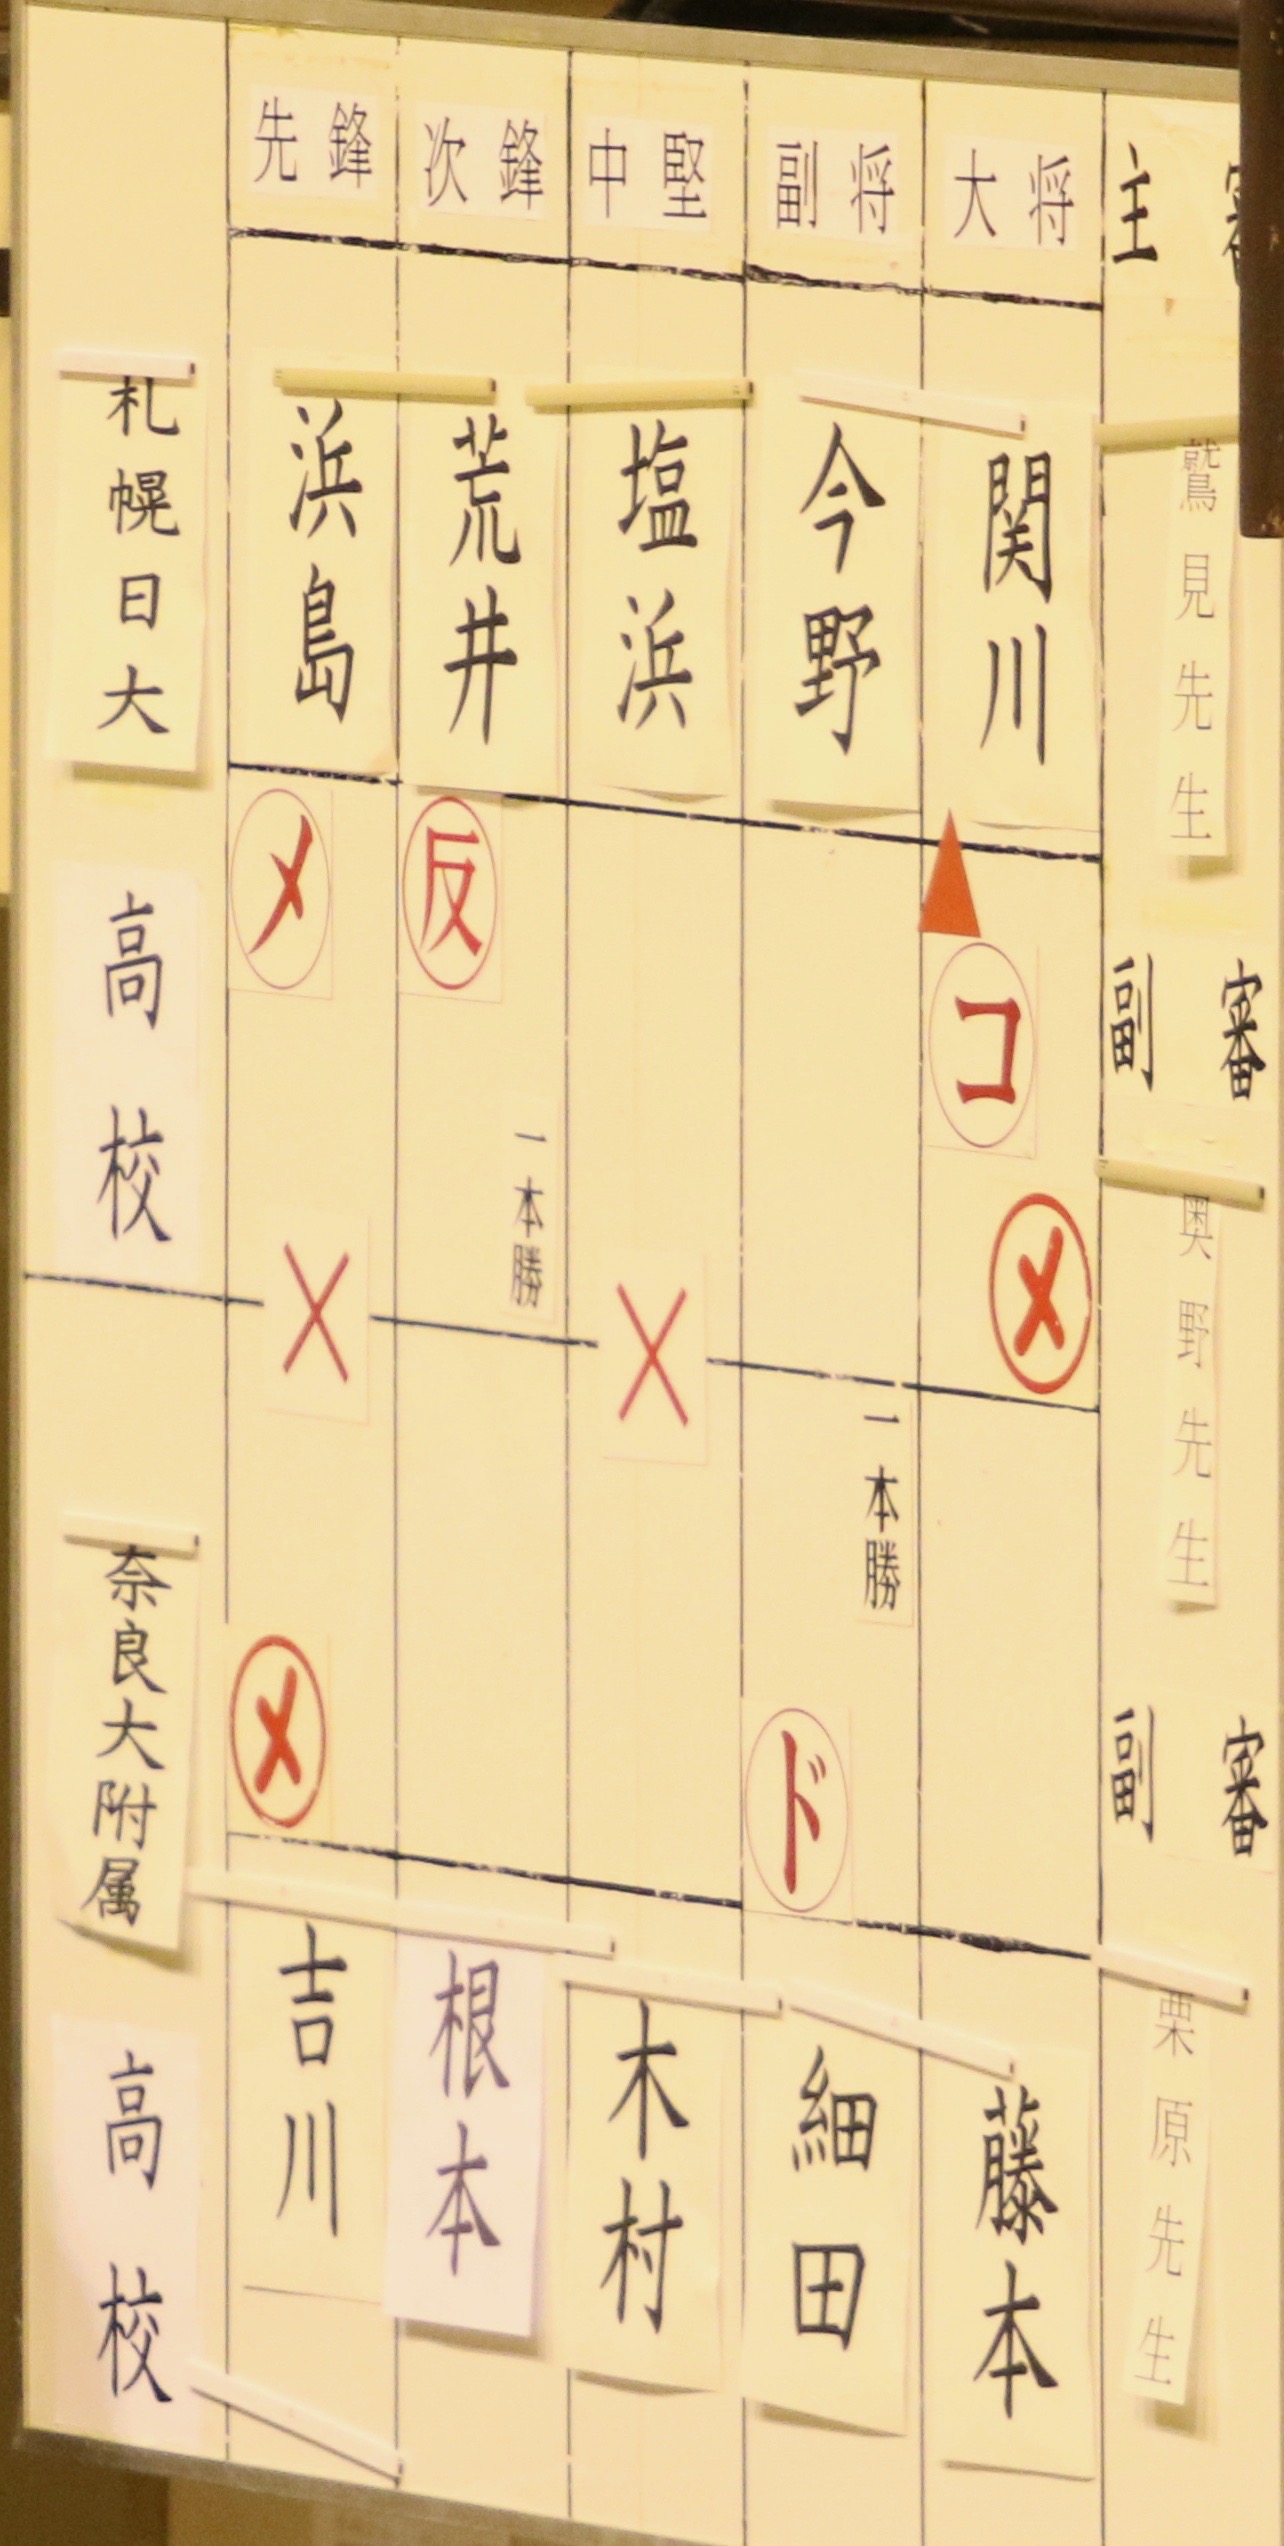 先鋒
次鋒
中堅
副将
大将
主審
札幌日大
高校
浜島
荒井
塩浜
今野
関川
鷲見先生
メ
反
コ
メ
一本勝
副審
奥野先生
一本勝
メ
ド
副審
奈良大附属
高校
吉川
根本
木村
細田
藤本
栗原先生